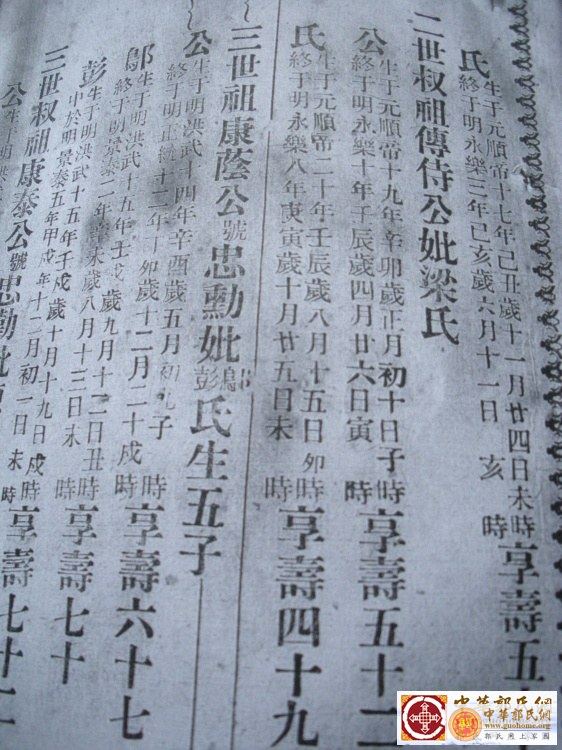 氏生于元順帝十七年己丑歲十一月廿四日未時
終于明永樂三年己亥歲六月十一日亥時
享壽五
二世叔祖傳侍公妣梁氏
公生于元順帝十九年辛卯歲正月初十日子時
終于明永樂十年壬辰歲四月廿六日寅時
享壽五十二
氏生于元順帝二十年壬辰歲八月十五日卯時
終于明永樂八年庚寅歲十月廿五日未時
享壽四十九
三世祖康蔭公號忠勳妣鄔彭氏生五子
公生于明洪武十四年辛酉歲五月初九子時
終于明正統十二年丁卯歲十二月二十戌時
享壽六十七
鄔生于明洪武十五年壬戌歲九月十二日丑時
終于明景泰二年辛未歲八月十三日未時
享壽七十
彭生于明洪武十五年壬戌歲十月十九日戌時
終於明景泰五年甲戌年十二月初一日未時
享壽七十
三世叔祖康泰公號忠勤妣
公生于明洪
中華郭氏網
中華郭氏網
www.guohome.org
郭氏網上家園